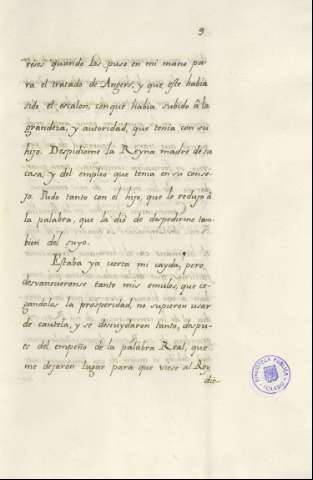 9
reses quando los puso en mi mano pa-
ra el tratado de Angers, y que este habia
sido el escalon, con que habia subido â la
grandeza, y autoridad, que tenia con su
hijo. Despidiome la Reyna madre de su
casa, y del empleo que tenia en su conse-
jo. Pudo tanto con el hijo, que le redujo â
la palabra, que la diò de despedirme tam-
bien del suyo.
Estaba ya cierta mi cayda, pero
desvanecieronse tanto mis emulos, que ce-
gandolos la prosperidad, no supieron usar
de cautela, y se descuydaron tanto, despu-
es del empeño de la palabra Real, que
me dejaron lugar para que viese al Rey,
die-
BIBLIOTECA PUBLICA
TOLEDO